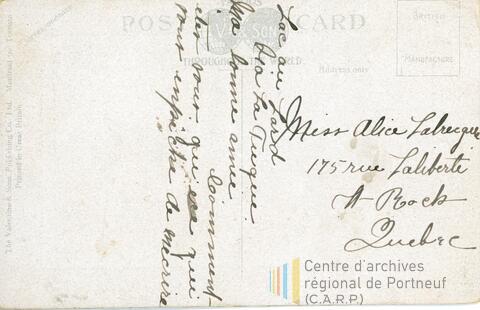 POST CARD
V & S
THROUGHOUT THE WORLD
Address only
BRITISH
MANUFACTURE
The Valentine & Sons Publishing Co. Ltd. Montreal and Toronto
Printed in Great Britain
Lac au Lard
Via La Tuque.
Ma bonne amie
Comment
etes vous qu'es ce qui
vous empêche de mecrire
Miss Alice Labrecque
175 rue Laliberté
St Roch
Quebec
Centre d'archives
régional de Portneuf
(C.A.R.P.)